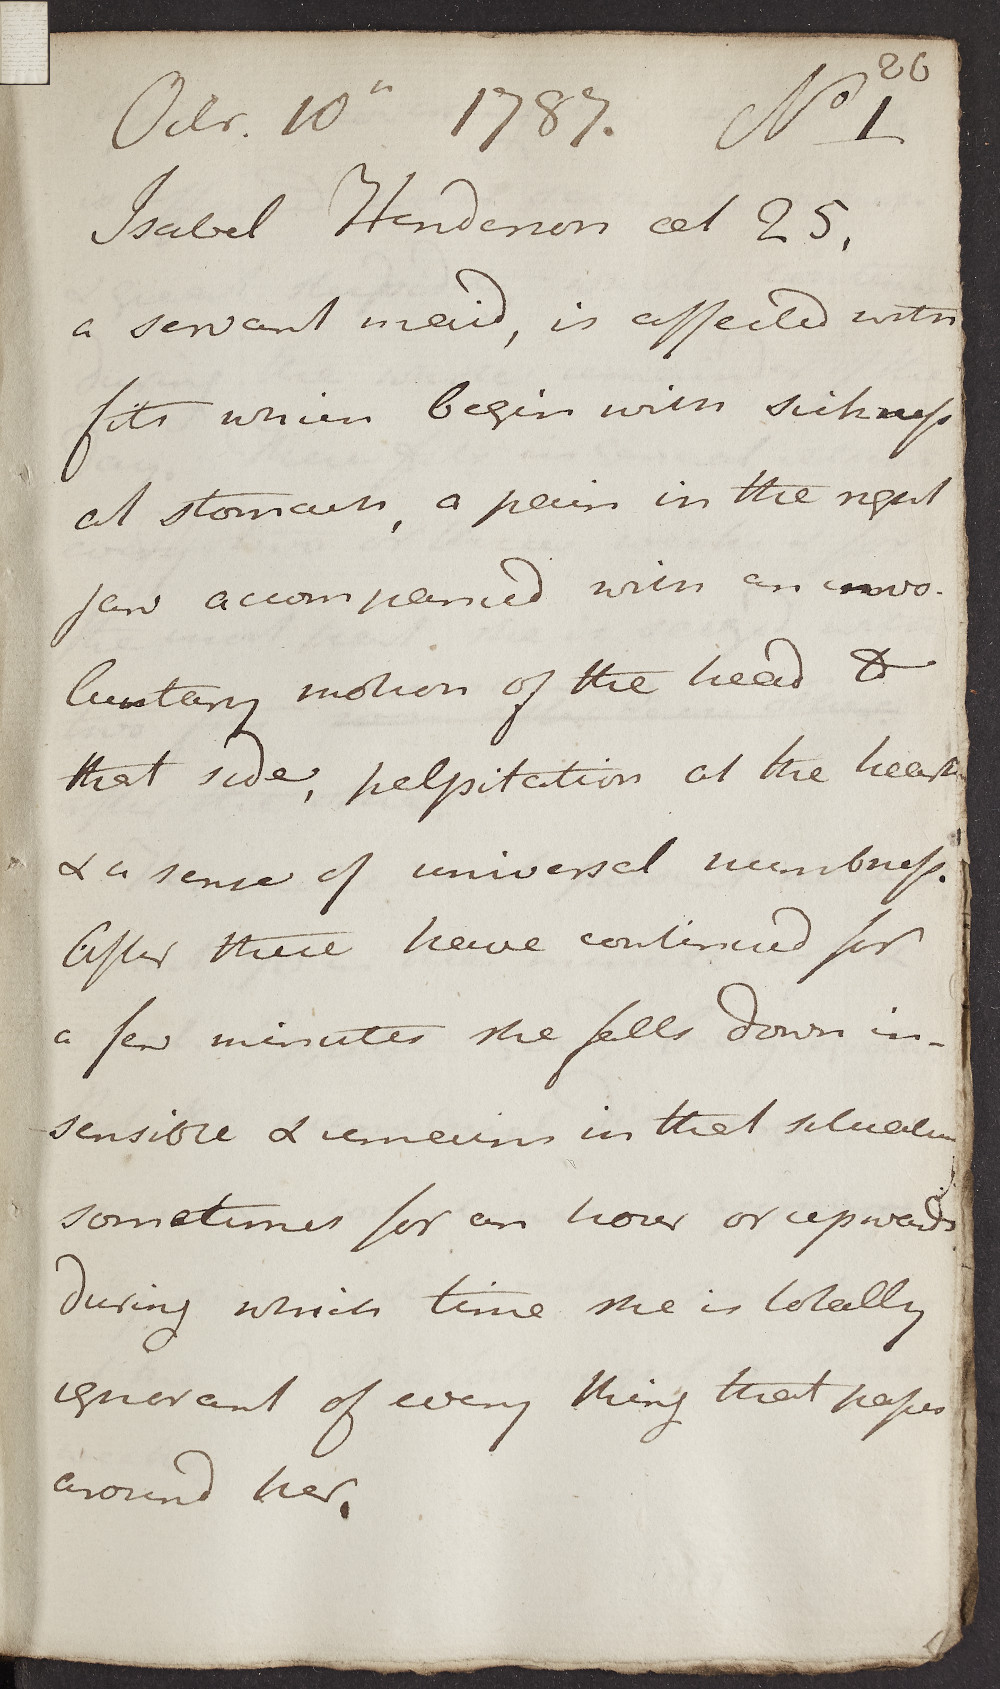 26
Octr. 10th 1787. No 1
Isabel Henderson aet 25,
a servant maid, is affected with
fits which begin with sickness
at stomach, a pain in the right
jaw accompanied with an invo-
luntary motion of the head to
that side, palpitation at the heart
& a sense of universal numbness.
After these have continued for
a few minutes she falls down in-
sensible & remains in that situation
sometimes for an hour or upwards
during which time she is totally
ignorant of every thing that passes
around her.